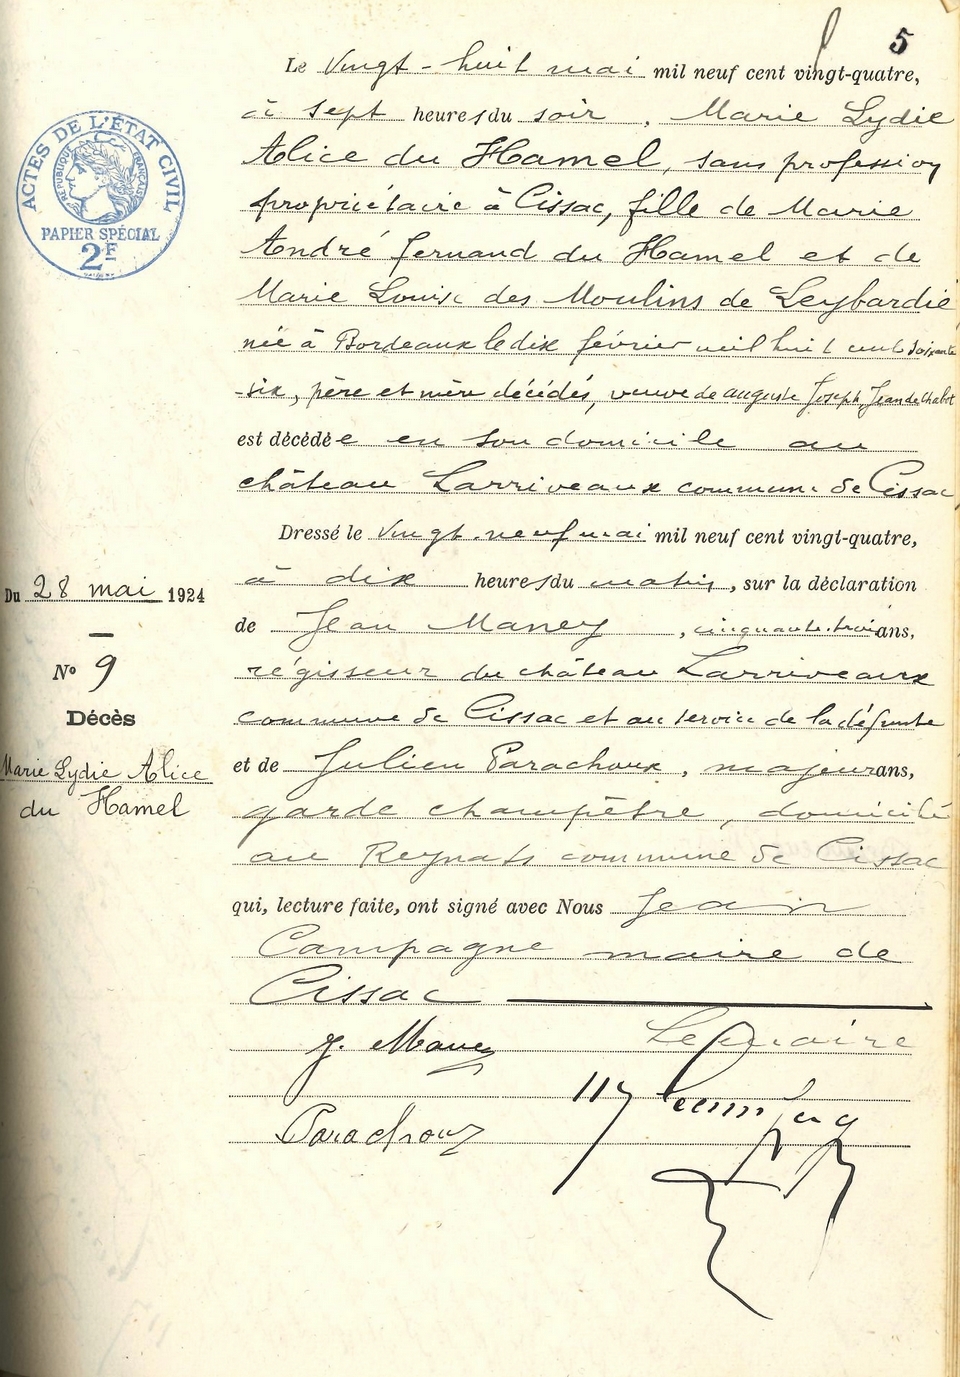 5
Le vingt-huit mai mil neuf cent vingt-quatre,
à sept heures du soir, Marie Lydie
Alice du Hamel, sans profession
propriétaire à Cissac, fille de Marie
André Fernand du Hamel et de
Marie Louise des Moulins de Leybardie
née à Bordeaux le dix février mil huit cent soixante
-six, père et mère décédés, veuve de auguste Joseph Jean de Chabot
est décédée en son domicile au
château Larriveaux commune de Cissac
Dressé le vingt-neuf mai mil neuf cent vingt-quatre,
à dix heures du matin, sur la déclaration
de Jean Maney, cinquante-trois ans,
régisseur du château Larriveaux
commune de Cissac et au service de la défunte
et de Julien Parachoux, majeur ans,
garde champêtre, domicilié
au Reynats commune de Cissac
qui, lecture faite, ont signé avec Nous Jean
Campagne maire de
Cissac
J. Maney Le Maire
Parachoux
ACTES DE L'ÉTAT CIVIL
RÉPUBLIQUE FRANÇAISE
PAPIER SPÉCIAL
2F
Du 28 mai 1924
N° 9
Décès
Marie Lydie Alice
du Hamel